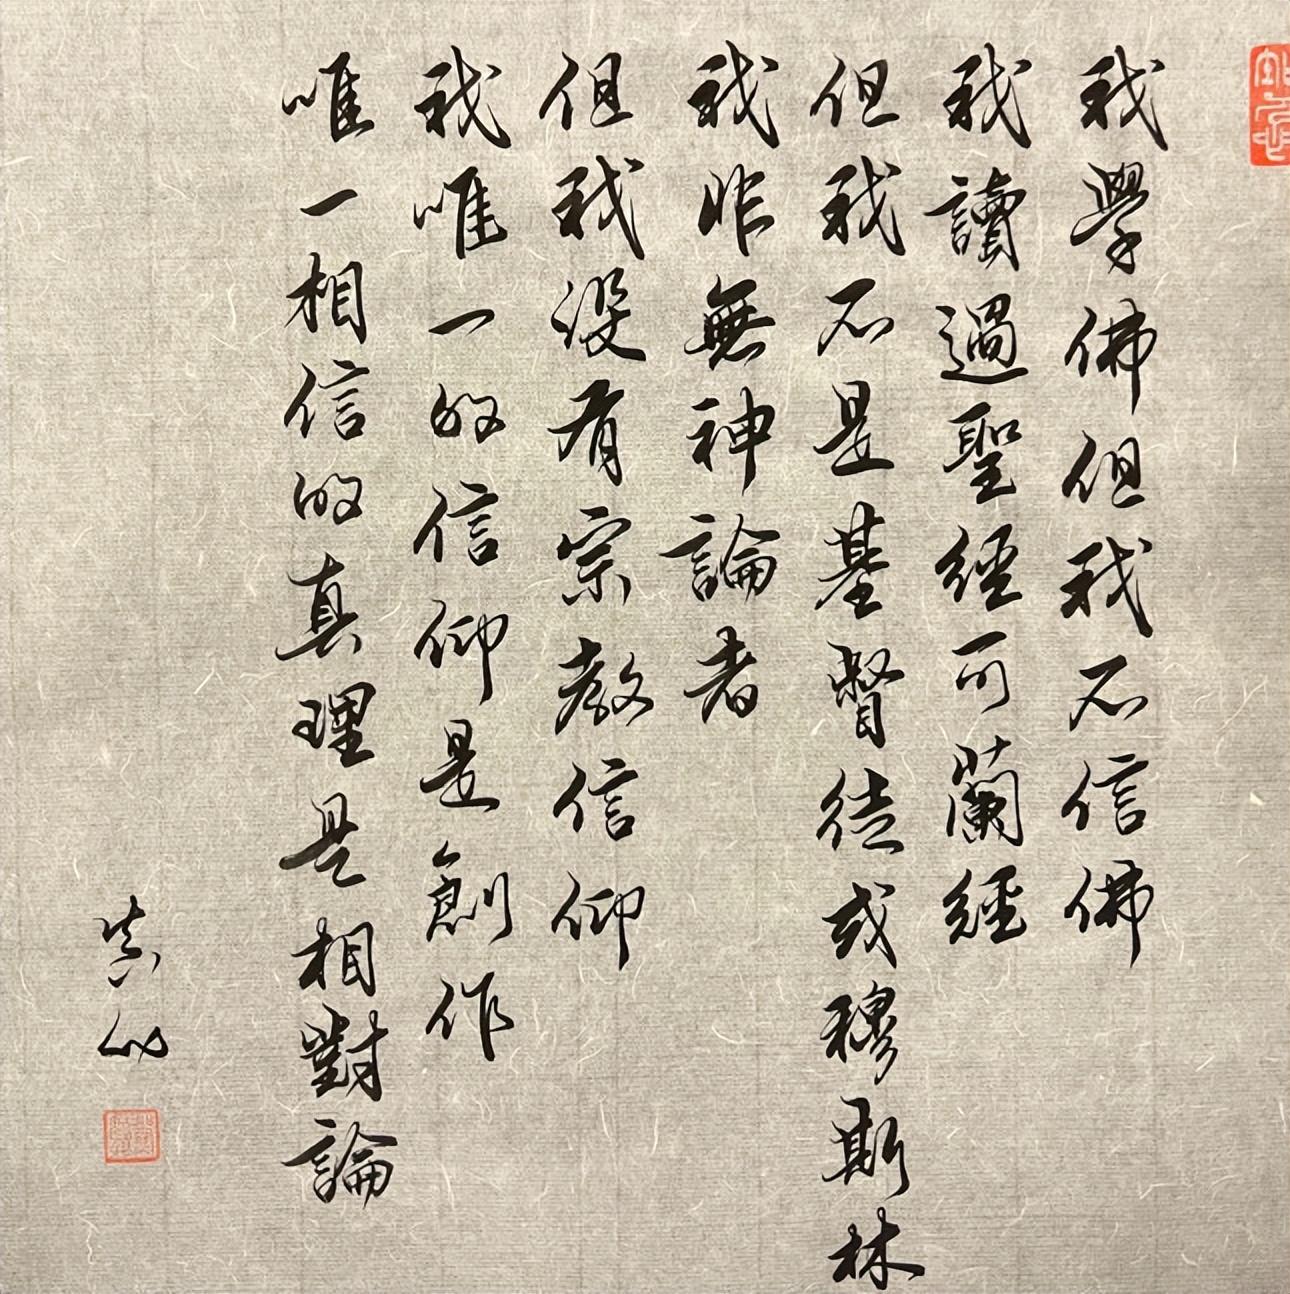 我學佛但我不信佛
我讀過聖經可蘭經
但我不是基督徒或穆斯林
我非無神論者
但我没有宗教信仰
我唯一的信仰是創作
唯一相信的真理是相對論